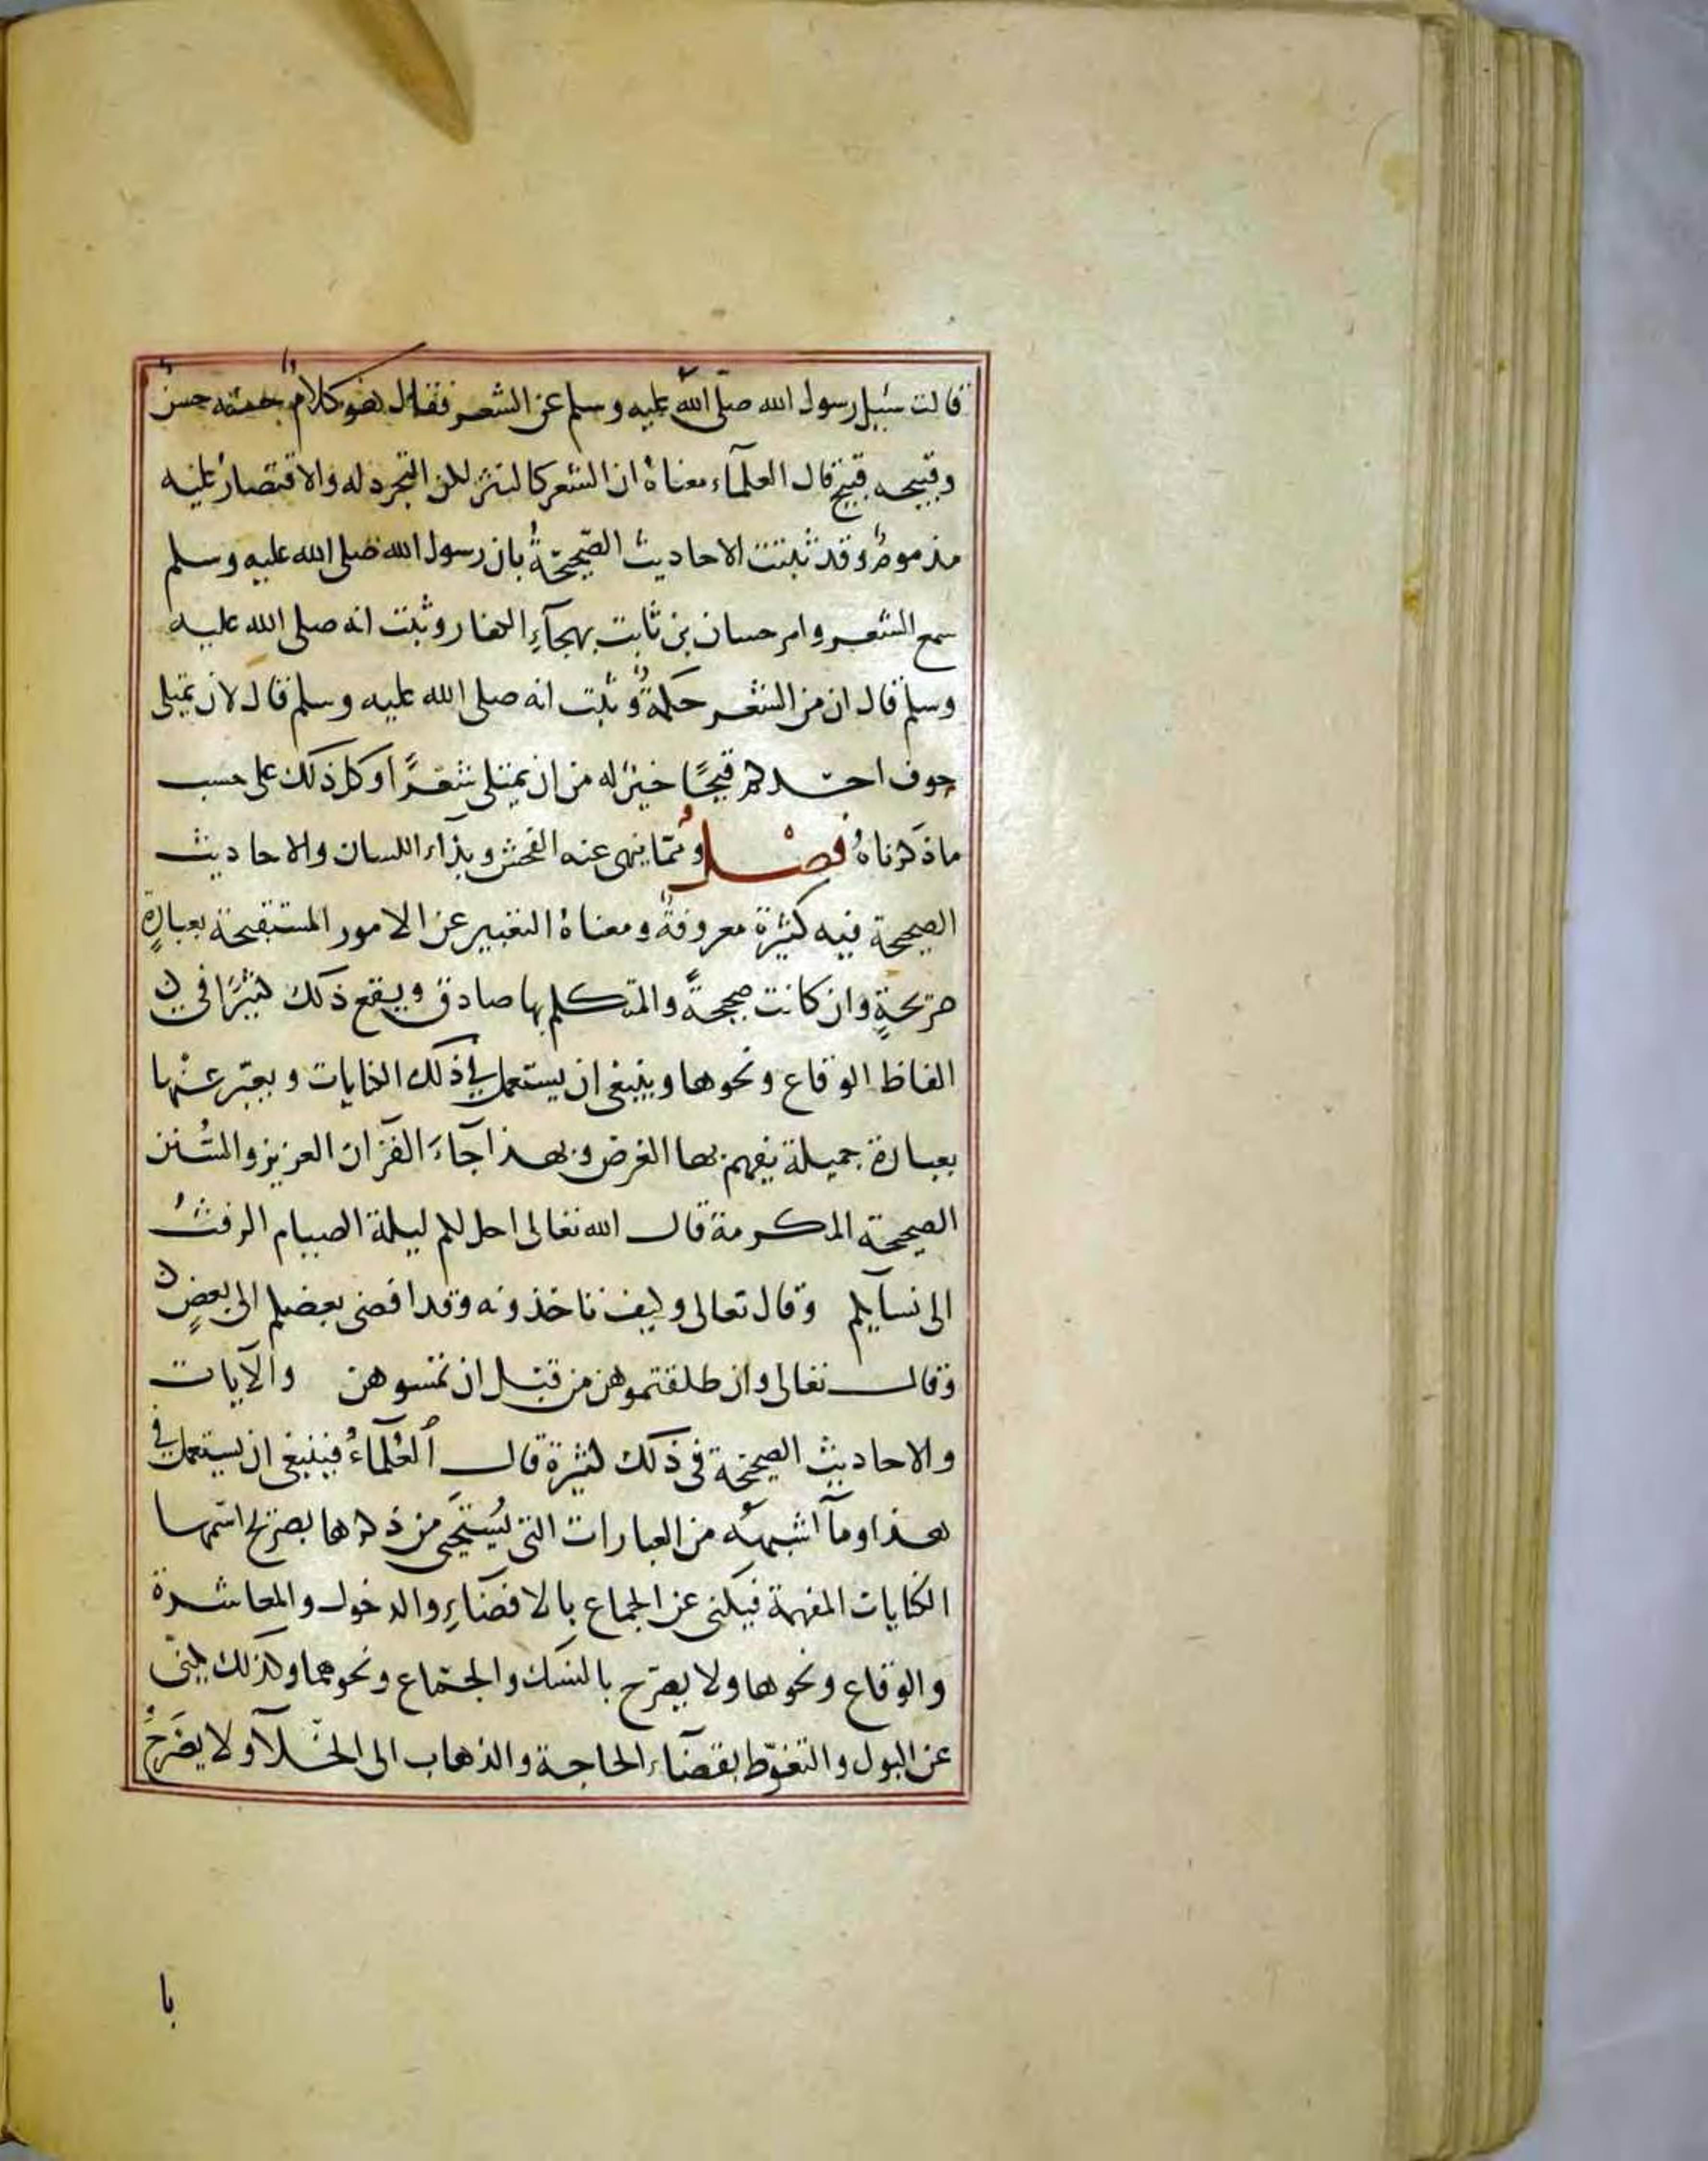 قالت سئيل رسول الله صلى الله عليه وسلم عن الشعر فقال هو كلامٌ حسنه حسنٌ
وقبيحه قبيح قال العلمآء معناهُ ان الشعر كالنثر لكن التجرد له والاقتصار عليه
مذمومٌ وقد ثبتت الاحاديث الصّحيحةُ بان رسول الله صلى الله عليه وسلم
سمع الشعر وامر حسان بن ثابت بهجآءِ الكفار وثبت انه صلى الله عليه
وسلم قال ان من الشعر حكمةٌ وثبت انه صلى الله عليه وسلم قال لان يمتلى
جوف احدكم قيحًا خيرٌ له من ان يمتلى شعرًا وكل ذلك على حسب
ماذكرناهُ فصْلٌ ومّما ينهى عنه الفحش وبذاء اللسان والاحاديث
الصحيحة فيه كثيرة معروفةٌ ومعناهُ التعبير عن الامور المستقبحة بعبارةٍ
صريحةٍ وان كانت صحيحةً والمتكلم بها صادق ويقع ذلك كثيرًا في
الفاظ الوقاع ونحوها وينبغى ان يستعمل في ذلك الكنايات ويعبّر عنْها
بعبارة جميلة يفهم بها الغرض وبهذا جآءَ القرآن العزيز والسُّنن
الصحيحة المكرمة قال الله تعالى احل لكم ليلة الصيام الرفثُ
الى نسآيكم وقال تعالى وكيف تاخذونه وقد افضى بعضكم الى بعضٍ
وقال تعالى وان طلقتموهن من قبل ان تمسوهن والآيات
والاحاديث الصحيحة فى ذلك كثيرة قال ٱلعُلمآءُ فينبغى ان يستعمل في
هذا ومآ اشبهه من العبارات التى يُستَحْيَى من ذكرها بصريح اسمها
الكنايات المفهمة فيكنى عن الجماع بالافضآءِ والدخول والمعاشرة
والوقاع ونحوها ولا يصرّح بالنيك والجماع ونحوهما وكذلك يكنى
عن البول والتغوّط بقضآء الحاجة والذهاب الى الخلآ ولا يصَرحُ
با